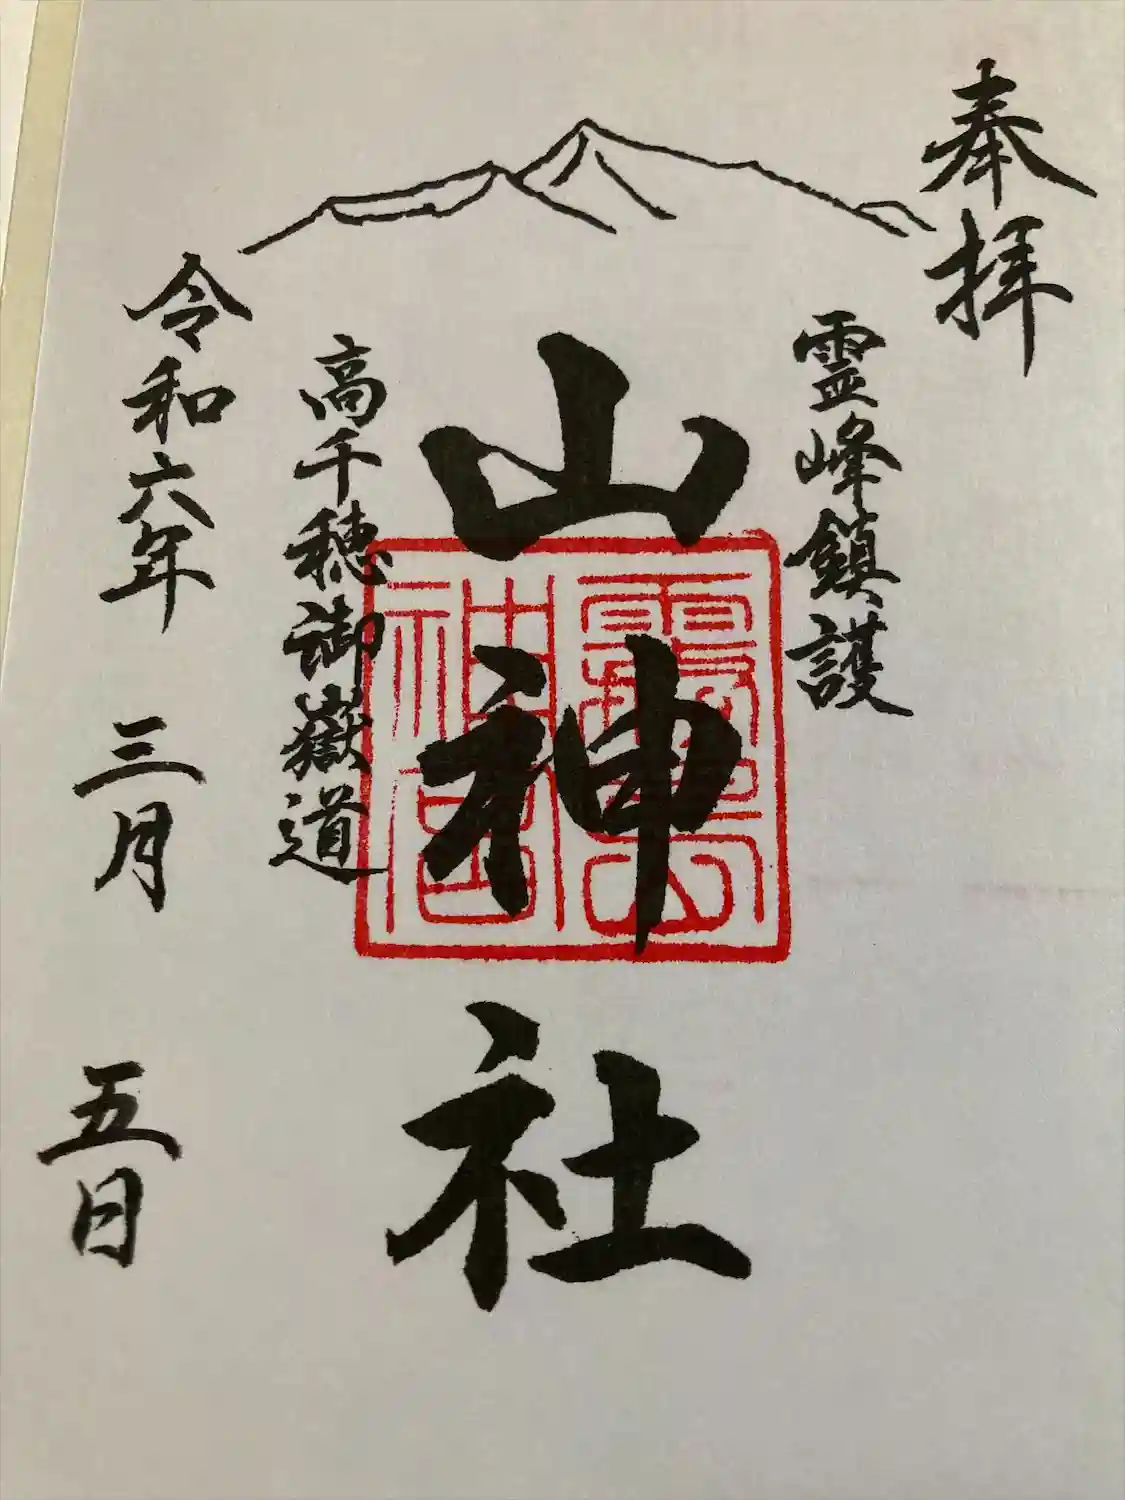 奉拝
霊峰鎮護
山神社
高千穂御嶽道
令和六年 三月 五日